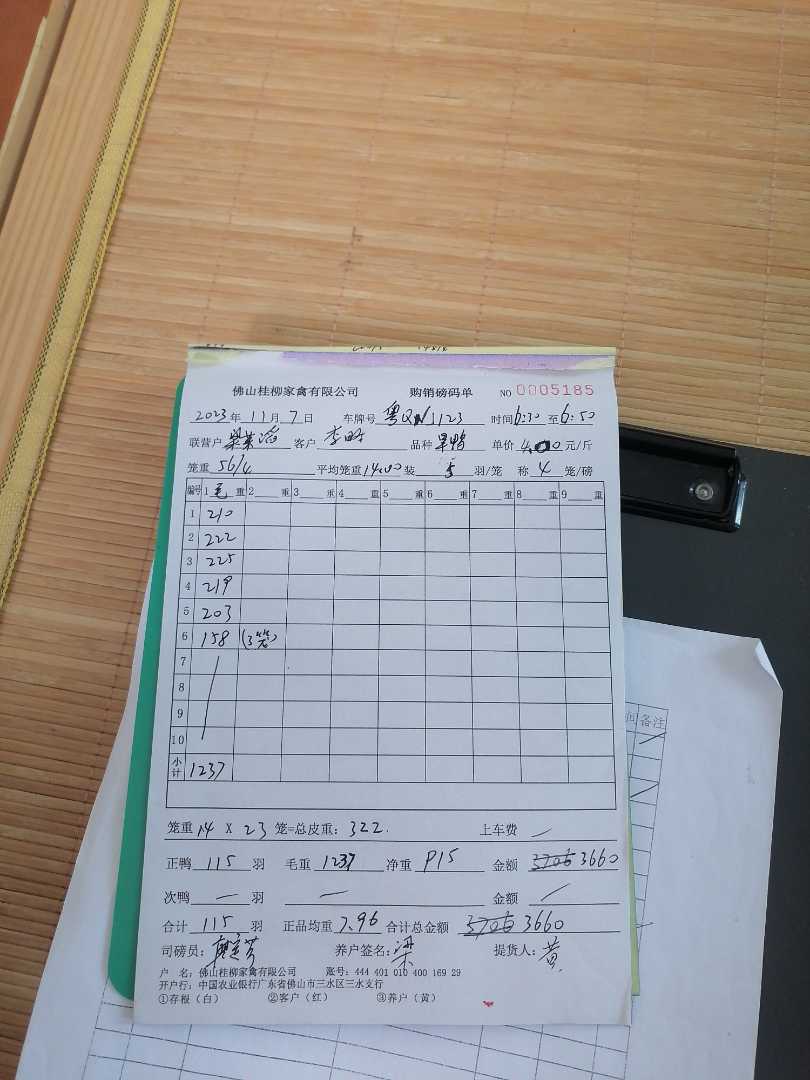 佛山桂柳家禽有限公司 购销磅码单 NO 0005185
2023年 11月 7日 车牌号 粤QN1123 时间6:30 至 6:50
联营户 客户 李 品种 单价 4.00 元/斤
笼重 56/4 平均笼重 14.00 装 5 羽/笼 称 4 笼/磅
编号 1 毛 重 2 重 3 重 4 重 5 重 6 重 7 重 8 重 9 重
1 210
2 222
3 225
4 219
5 203
6 158 (3笼)
7
8
9
10
小计 1237
笼重 14 X 23 笼=总皮重: 322. 上车费 —
正鸭 115 羽 毛重 1237 净重 915 金额 3706 3660
次鸭 — 羽 — 金额
合计 115 羽 正品均重 7.96 合计总金额 3706 3660
司磅员: 养户签名: 梁 提货人: 黄
户 名: 佛山桂柳家禽有限公司 账号: 444 401 010 400 169 29
开户行: 中国农业银行广东省佛山市三水区三水支行
①存根（白） ②客户（红） ③养户（黄）
间 备注